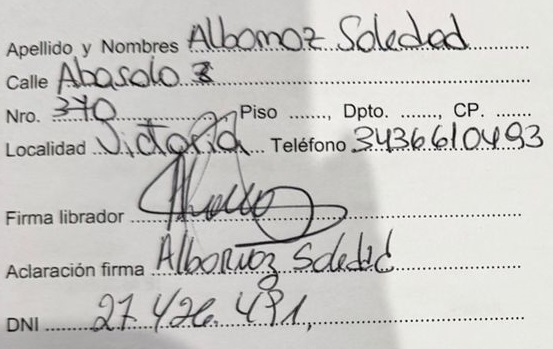 Apellido y Nombres Albornoz Soledad
Calle Abasolo
Nro. 370 Piso ......., Dpto. ......., CP. ......
Localidad Victoria Teléfono 3436610493
Firma librador
Aclaración firma Albornoz Soledad
DNI 27.426.491,